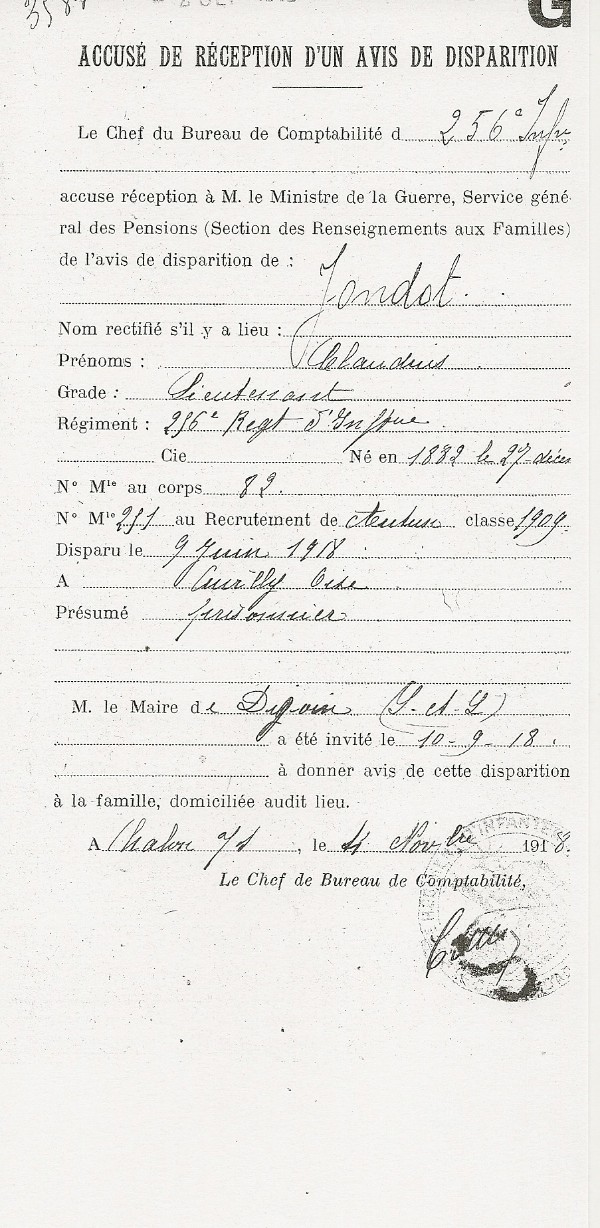 G
ACCUSÉ DE RÉCEPTION D'UN AVIS DE DISPARITION
Le Chef du Bureau de Comptabilité d 256e Infie
accuse réception à M. le Ministre de la Guerre, Service géné-
ral des Pensions (Section des Renseignements aux Familles)
de l'avis de disparition de :
Jondot
Nom rectifié s'il y a lieu :
Prénoms : Claudius
Grade : Lieutenant
Régiment : 256e Regt d'Inftrie
Cie Né en 1882 le 27 décem
N° Mle au corps 82.
N° Mle 251 au Recrutement de Autun classe 1909
Disparu le 9 Juin 1918
A Oise
Présumé prisonnier
M. le Maire de Digoin (S-et-L)
a été invité le 10-9-18.
à donner avis de cette disparition
à la famille, domiciliée audit lieu.
A Chalon s/s, le Novbre 1918.
Le Chef de Bureau de Comptabilité,